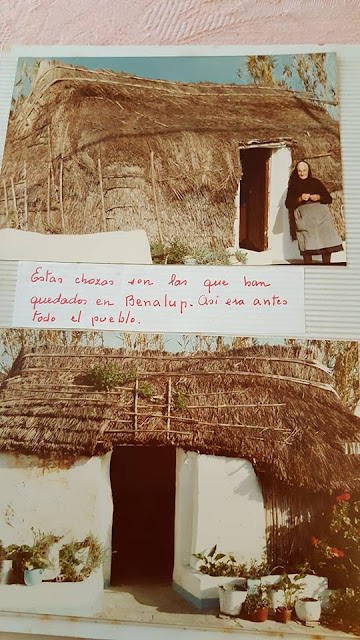 Estas chozas son las que han
quedados en Benalup. Asi era antes
todo el pueblo.